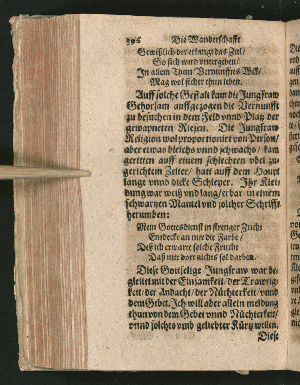 396 Die Wanderschafft
Gewißlich der erlangt das Ziel/
So sich ward vntergeben/
In allem thun Vernunfftes Will/
Mag wol sicher thun leben.
Auff solche Gestalt kam die Jungfraw
Gehorsam auffgezogen die Vernunfft
zu besuchen in dem Feld vnnd Platz der
gewapneten Riesen. Die Jungfraw
Religion wol proportioniert von Person/
aber etwas bleichs vnnd schwachs/ kam
geritten auff einem schlechten vbel zu-
gerichtem Zelter/ hatt auff dem Haupt
lange vnnd dicke Schleyer. Ihr Klei-
dung war weiß vnd lang/ erbar in einem
schwartzen Mantel vnd solcher Schrifft
herumben:
Mein Gottesdienst in strenger Zucht
Entdeckt an mir die Farbe/
Deß ich erwarte solche Frucht
Daß mir dort nichts sol darben.
Diese Gottselige Jungfraw war be-
gleitet mit der Einsamkeit/ der Trawrig-
keit/ der Andacht/ der Nüchterkeit/ vnnd
dem Gebet. Ich will aber allein meldung
thun von dem Gebet vnnd Nüchterkeit/
vnnd solches vmb geliebter Kürtz willen.
Diese